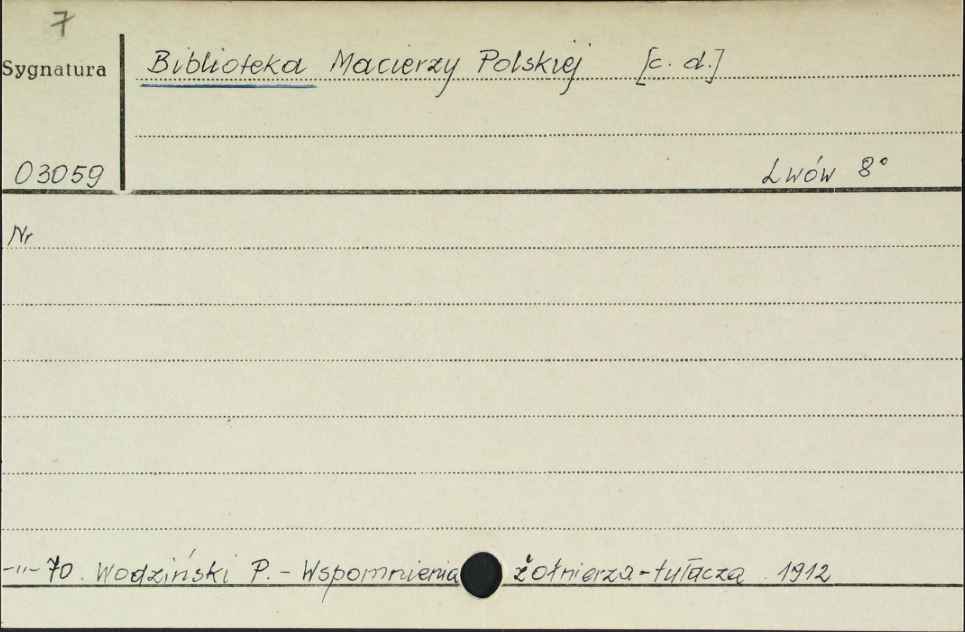 7
Sygnatura Biblioteka Macierzy Polskiej [c. d.]
03059 Lwów 8°
Nr
-"- 70. Wodziński P. - Wspomnienia żołnierza-tułacza 1912